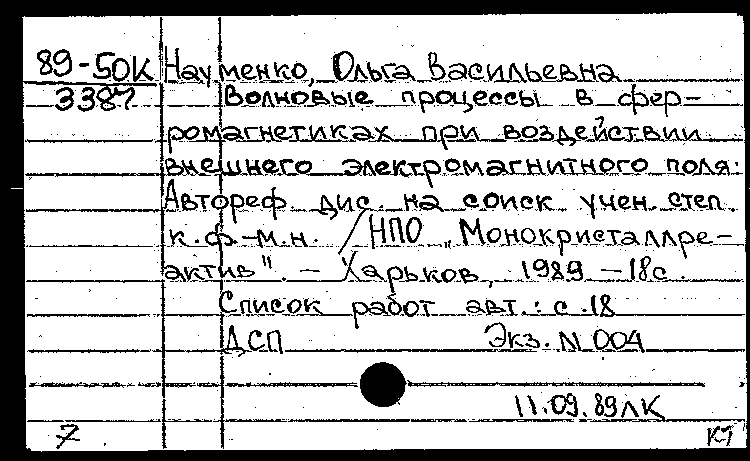 89-50К Науменко, Ольга Васильевна
3387 Волновые процессы в фер-
ромагнетиках при воздействии
внешнего электромагнитного поля:
Автореф. дис. на соиск учен. степ
к.ф-м.н. / НПО „Монокристаллре-
актив". – Харьков, 1989 – 18с.
Список работ авт.: с.18
ДСП Экз. N 004
11.09.89 ЛК
7 КТ